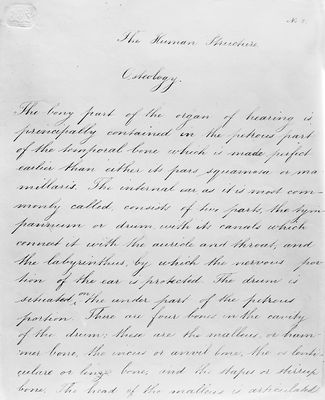 No. 2.
The Human Structure
Osteology.
The bony part of the organ of hearing is
principally contained in the petrous part
of the temporal bone which is made perfect
earlier than either its pars squamosa or ma
millaris. The internal ear as it is most com-
monly called, consists of two parts, the tym
panum or drum with its canals which
connect it with the auricle and throat, and
the labyrinthus, by which the nervous por
tion of the ear is protected. The drum is
situated on the under part of the petrous
portion. There are four bones in the cavity
of the drum; these are the malleus, or ham-
mer bone, the incus or anvil bone, the os lenti
culare or bone; and the stapes or stirrup
bone. The head of the malleus is articulated